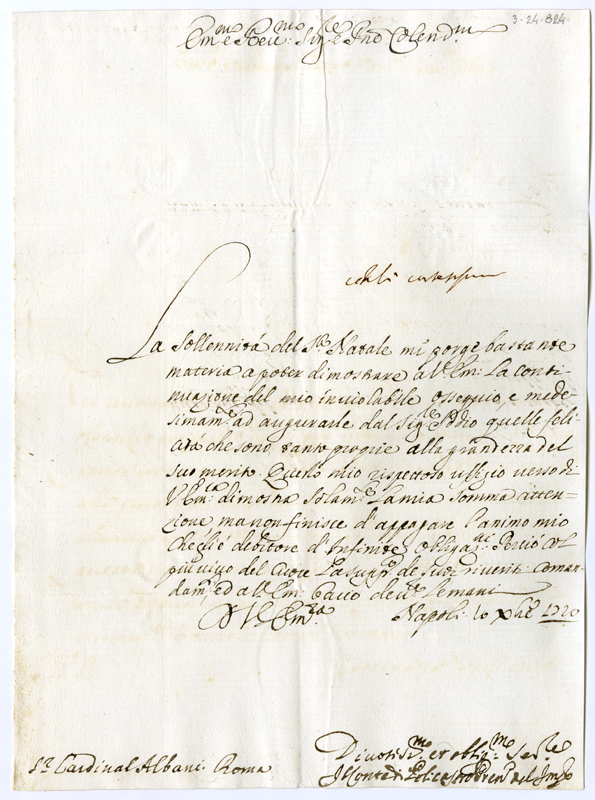 3-24-824
Em.mo e Rev.mo Sig.re e Pnõ Colend.mo
La sollennitá del S.to Natale mi porge bastante
materia a poter dimostrare a V. Em: La conti
nuazione del mio inviolabile ossequio, e mede
simam.te ad augurarle dal Sig.re Iddio quelle feli
citá che sono tanto proprie alla grandezza del
suo merito. Questo mio rispettoso uffizio verso di
V. Em.za dimostra solam.te La mia somma atten=
zione, ma non finisce d'appagare l'animo mio
che gl'é debitore d'infinite obliga.ni Perció col
piu vivo del Cuore La supp.co de suoi riverit. Coman
dam.ti, ed a V. Em: bacio devot. Le mani
D V. Em.za Napoli 10 Xbre 1720
Divotis.mo et oblig.mo Ser.re
Il Conte di Policastro
S.r Cardinal Albani. Roma